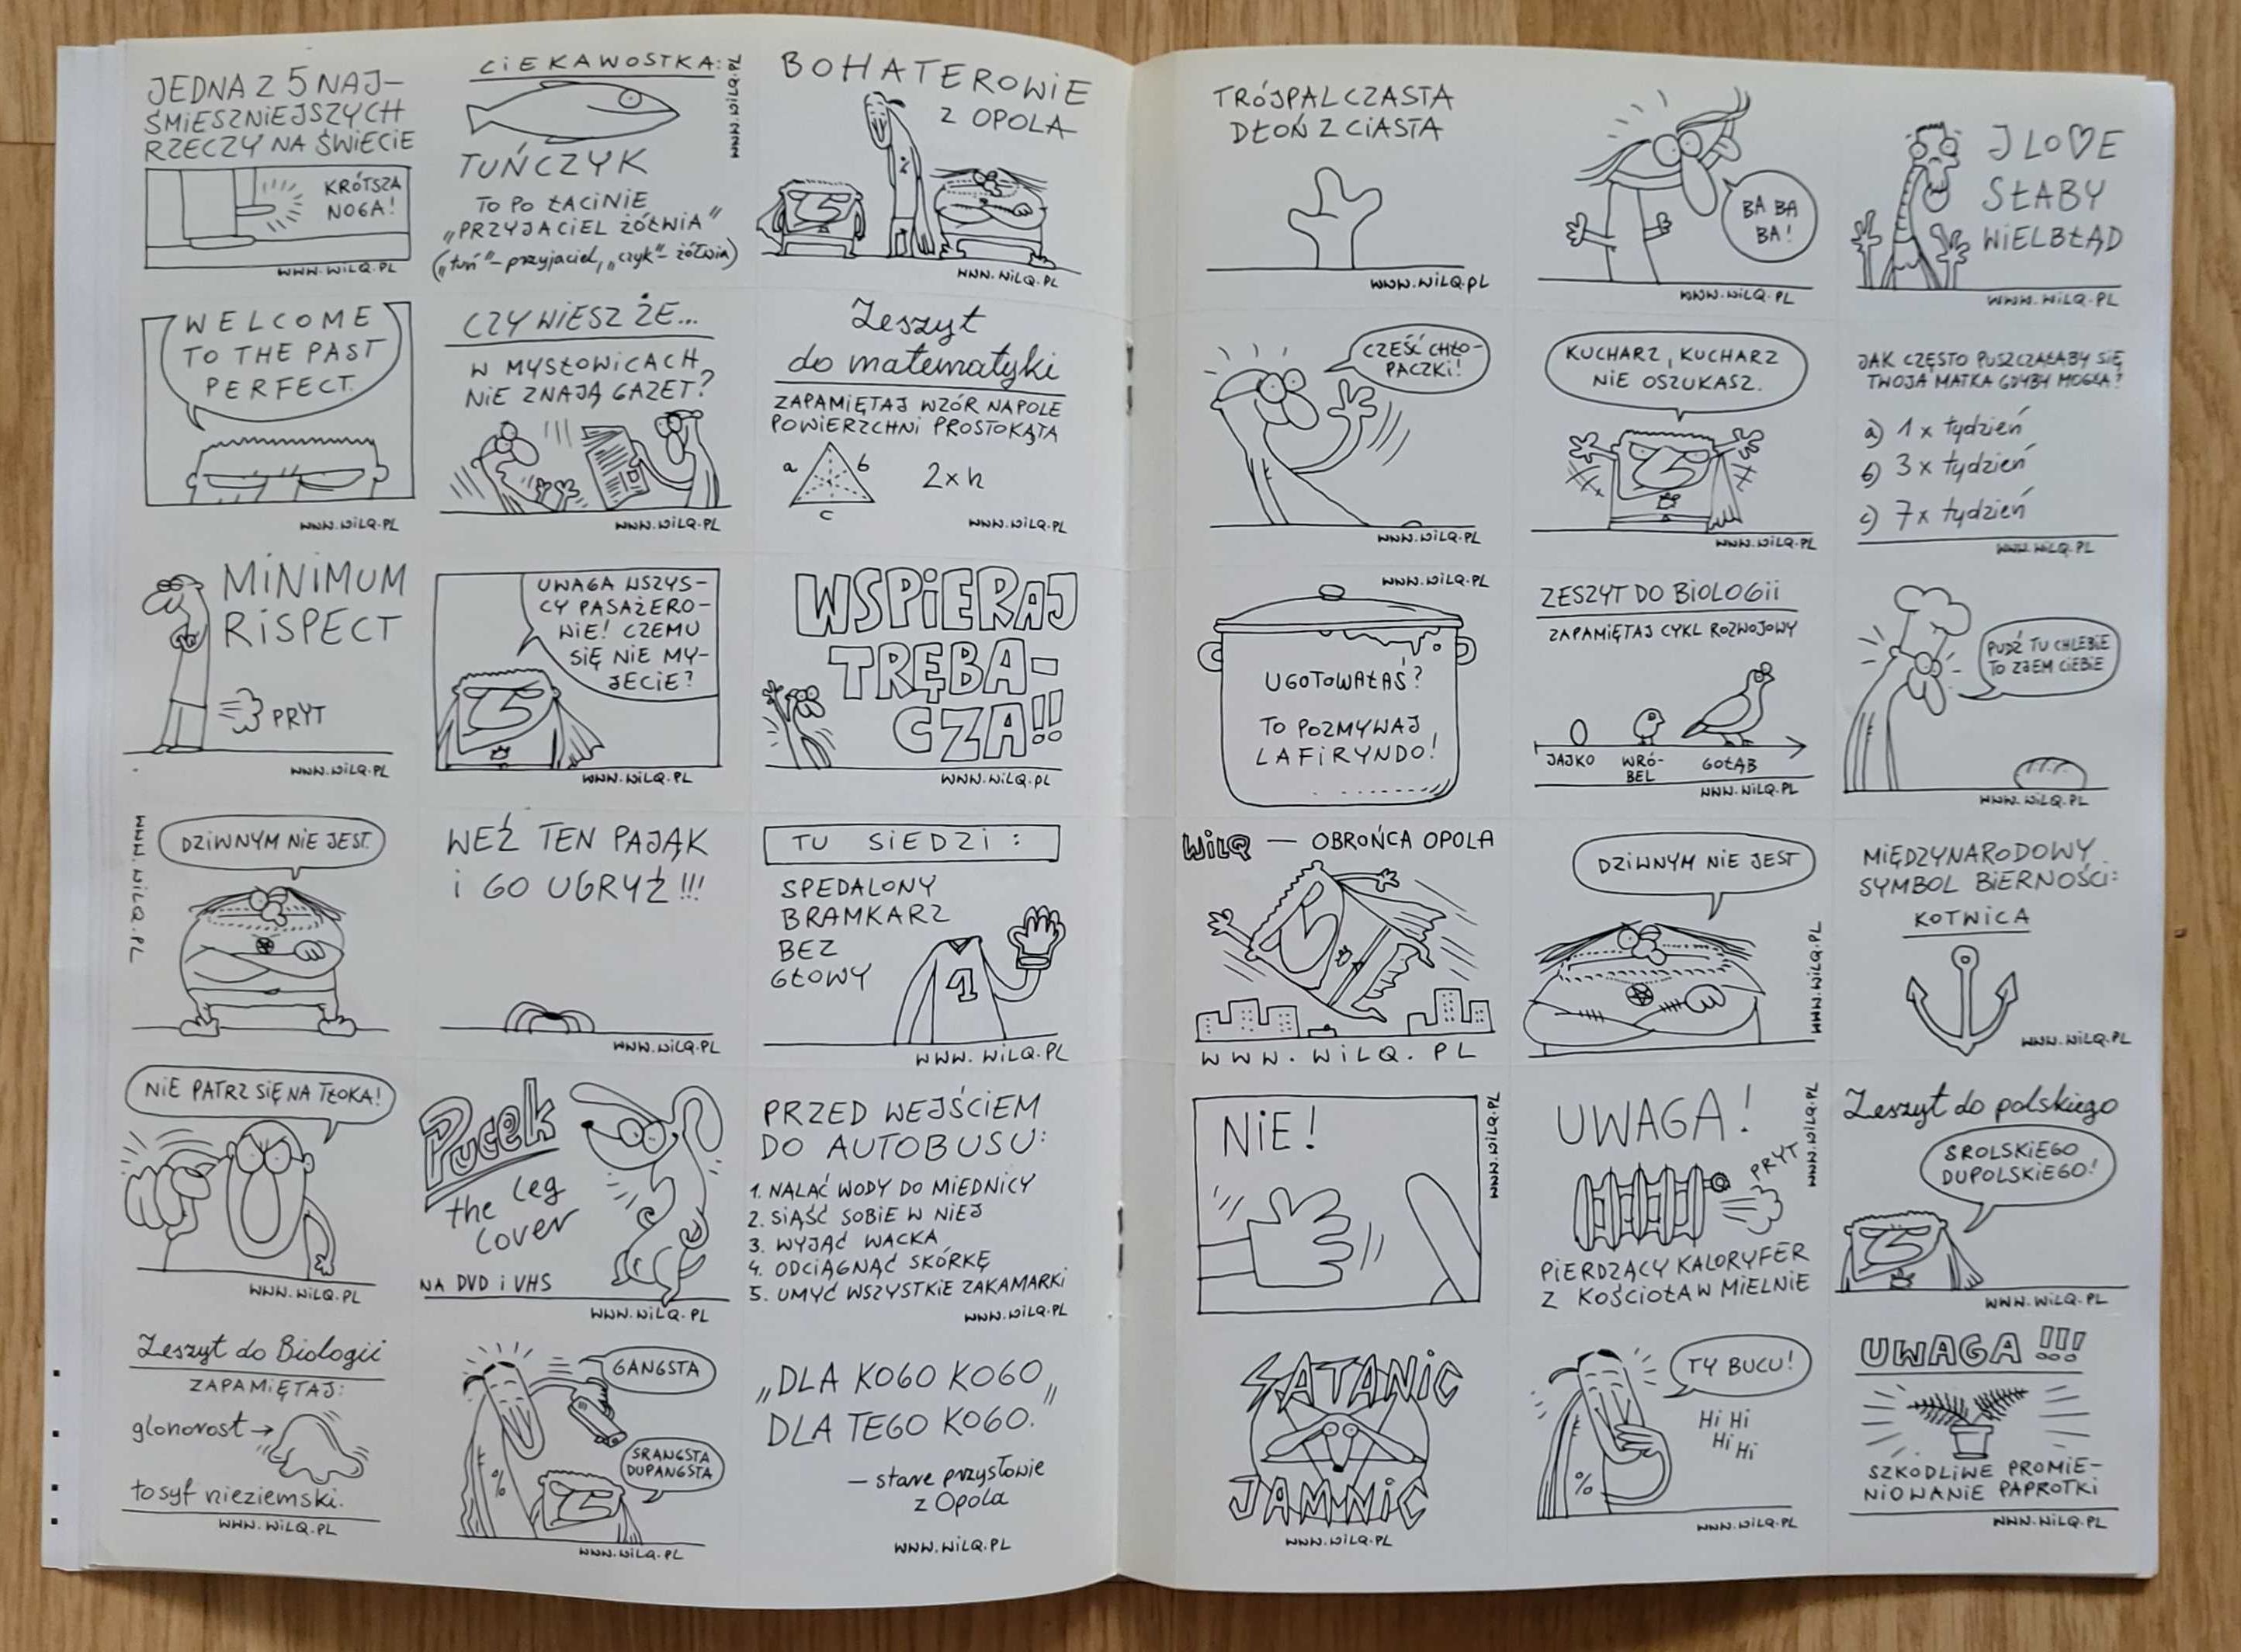 JEDNA Z 5 NAJ-
ŚMIESZNIEJSZYCH
RZECZY NA ŚWIECIE
KRÓTSZA
NOGA!
WWW.WILQ.PL
CIEKAWOSTKA:
TUŃCZYK
TO PO ŁACINIE
„PRZYJACIEL ŻÓŁWIA"
(„tuń" – przyjaciel, „czyk" – żółwia)
WWW.WILQ.PL
BOHATEROWIE
Z OPOLA
WWW.WILQ.PL
WELCOME
TO THE PAST
PERFECT.
WWW.WILQ.PL
CZY WIESZ ŻE...
W MYSŁOWICACH
NIE ZNAJĄ GAZET?
WWW.WILQ.PL
Zeszyt
do matematyki
ZAPAMIĘTAJ WZÓR NA POLE
POWIERZCHNI PROSTOKĄTA
a b
2xh
c
WWW.WILQ.PL
MINIMUM
RISPECT
PRYT
WWW.WILQ.PL
UWAGA WSZYS-
CY PASAŻERO-
WIE! CZEMU
SIĘ NIE MY-
JECIE?
WWW.WILQ.PL
WSPIERAJ
TRĘBA-
CZA!!
WWW.WILQ.PL
DZIWNYM NIE JEST.
WWW.WILQ.PL
WEŹ TEN PAJĄK
I GO UGRYŹ!!!
WWW.WILQ.PL
TU SIEDZI:
SPEDALONY
BRAMKARZ
BEZ
GŁOWY
1
WWW.WILQ.PL
NIE PATRZ SIĘ NA TŁOKA!
WWW.WILQ.PL
Pucek
the leg
lover
NA DVD i VHS
WWW.WILQ.PL
PRZED WEJŚCIEM
DO AUTOBUSU:
1. NALAĆ WODY DO MIEDNICY
2. SIĄŚĆ SOBIE W NIEJ
3. WYJĄĆ WACKA
4. ODCIĄGNĄĆ SKÓRKĘ
5. UMYĆ WSZYSTKIE ZAKAMARKI
WWW.WILQ.PL
Zeszyt do Biologii
ZAPAMIĘTAJ:
glonorost →
to syf nieziemski.
WWW.WILQ.PL
GANGSTA
SRANGSTA
DUPANGSTA
%
WWW.WILQ.PL
„DLA KOGO KOGO,,
DLA TEGO KOGO.
— stare przysłowie
z Opola
WWW.WILQ.PL
TRÓJPALCZASTA
DŁOŃ Z CIASTA
WWW.WILQ.PL
BA BA
BA!
WWW.WILQ.PL
J LO♡E
SŁABY
WIELBŁĄD
WWW.WILQ.PL
CZEŚĆ CHŁO-
PACZKI!
WWW.WILQ.PL
KUCHARZ, KUCHARZ
NIE OSZUKASZ.
WWW.WILQ.PL
JAK CZĘSTO PUSZCZAŁABY SIĘ
TWOJA MATKA GDYBY MOGŁA?
a) 1 x tydzień
b) 3 x tydzień
c) 7 x tydzień
WWW.WILQ.PL
WWW.WILQ.PL
UGOTOWAŁAŚ?
TO POZMYWAJ
LAFIRYNDO!
ZESZYT DO BIOLOGII
ZAPAMIĘTAJ CYKL ROZWOJOWY
JAJKO WRÓ-
BEL GOŁĄB
WWW.WILQ.PL
PUDŹ TU CHLEBIE
TO ZJEM CIEBIE
WWW.WILQ.PL
WILQ — OBROŃCA OPOLA
WWW.WILQ.PL
DZIWNYM NIE JEST
WWW.WILQ.PL
MIĘDZYNARODOWY
SYMBOL BIERNOŚCI:
KOTWICA
WWW.WILQ.PL
NIE!
WWW.WILQ.PL
UWAGA!
PRYT
PIERDZĄCY KALORYFER
Z KOŚCIOŁA W MIELNIE
WWW.WILQ.PL
Zeszyt do polskiego
SROLSKIEGO
DUPOLSKIEGO!
WWW.WILQ.PL
SATANIC
JAMNIC
WWW.WILQ.PL
TY BUCU!
Hi Hi
Hi Hi
%
WWW.WILQ.PL
UWAGA!!!
SZKODLIWE PROMIE-
NIOWANIE PAPROTKI
WWW.WILQ.PL